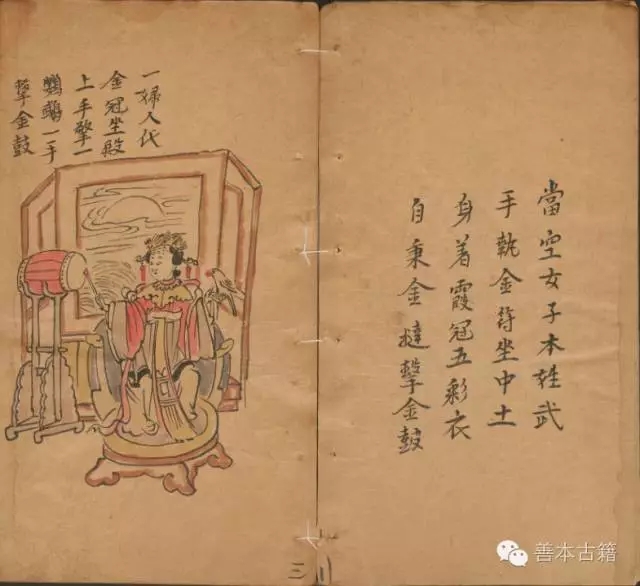 當空女子本姓武
手執金符坐中土
身着霞冠五彩衣
自秉金撻擊金鼓
一婦人代
金冠坐殿
上手擎一
鸚鵡一手
擊金鼓
三
善本古籍